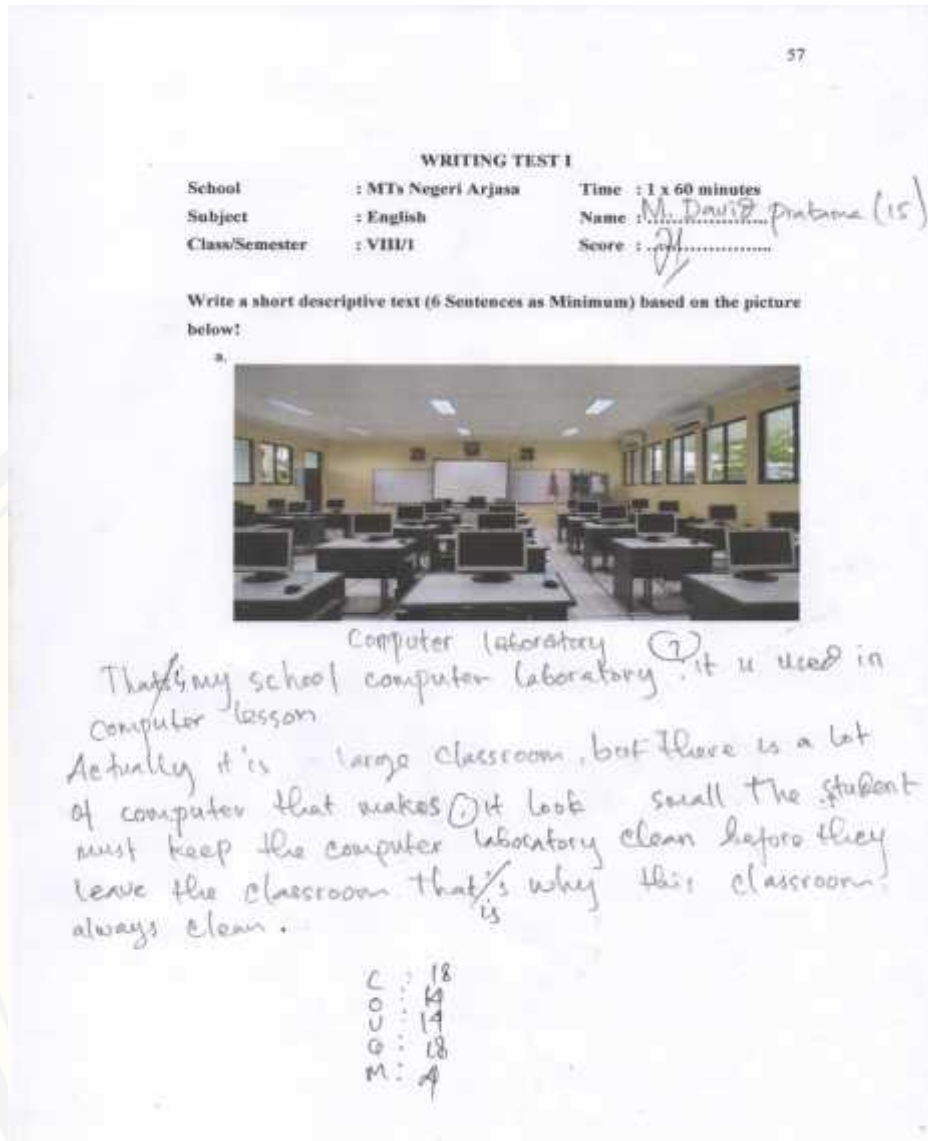 57
WRITING TEST I
School : MTs Negeri Arjasa Time : 1 x 60 minutes
Subject : English Name : M. David pratama (15)
Class/Semester : VIII/1 Score : ....................
Write a short descriptive text (6 Sentences as Minimum) based on the picture
below!
a.
Computer laboratory
That's my school computer laboratory. it is used in
computer lesson
Actually it is large classroom, but there is a lot
of computer that makes it look small the student
must keep the computer laboratory clean before they
leave the classroom that's why this classroom
is
always clean.
C : 18
O : 14
U : 14
G : 18
M : 4